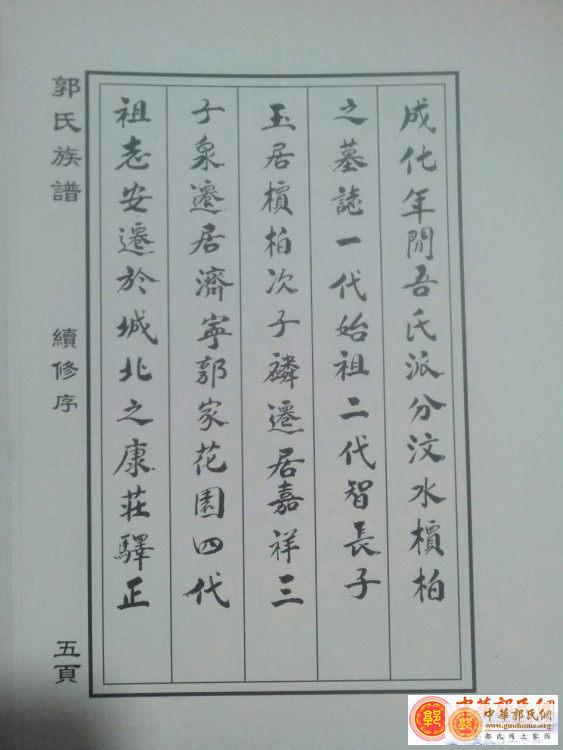 郭氏族譜
續修序
五頁
成化年間吾氏派分汶水檟柏
之墓誌一代始祖二代智長子
玉居檟柏次子麟遷居嘉祥三
子泉遷居濟寧郭家花園四代
祖志安遷於城北之康莊驛正
中華郭氏網
www.guohome.org
郭氏网上家园